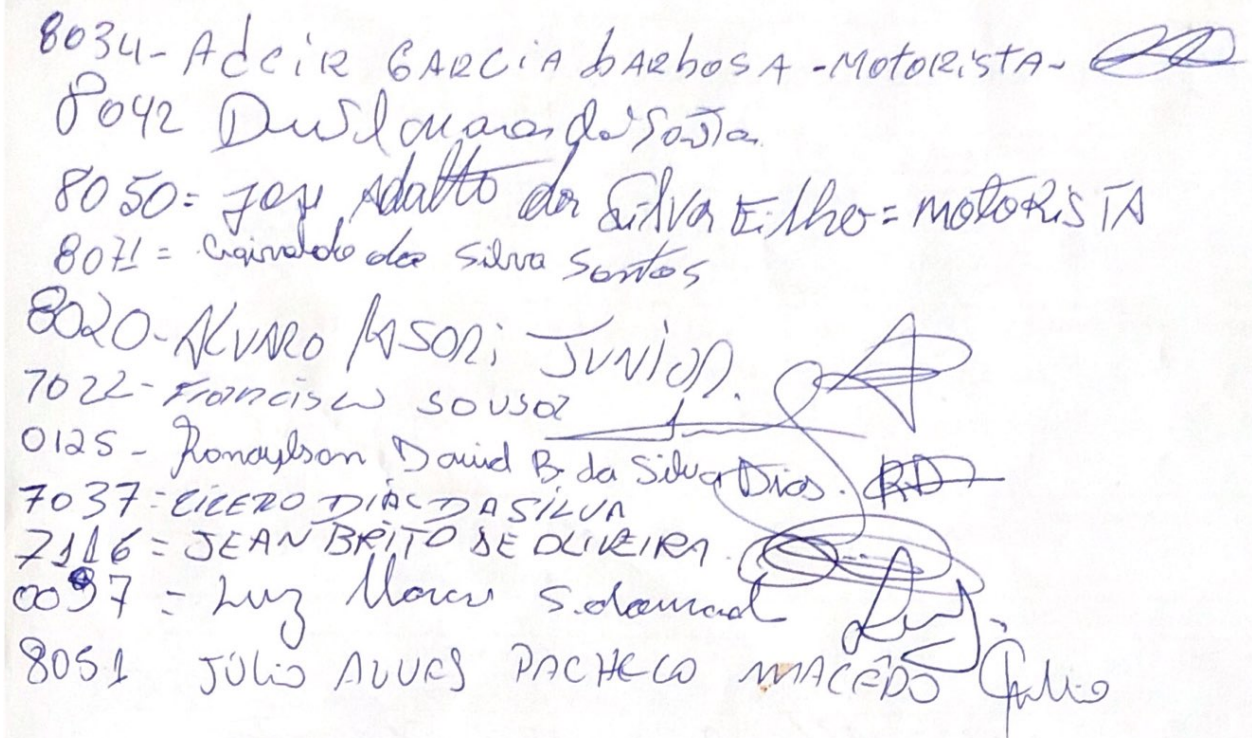 8034- Adcir GARCiA bARbOSA -MotoRistA-
8042
8050= Jose Adalto da Silva Filho = MOTORiSTA
8071 = da Silva Santos
8020- ALVARO ASORi JUNiOR.
7022- Francisco SOUSa
0125 - Ronaylson David B. da Silva Dias.
7037-CÍCERO DIAS DA SILVA
7116= JEAN BRITO DE OLIVEIRA.
0037 = Luz
8051 JÚLiO ALVES PACHECO MACÊDO Júlio